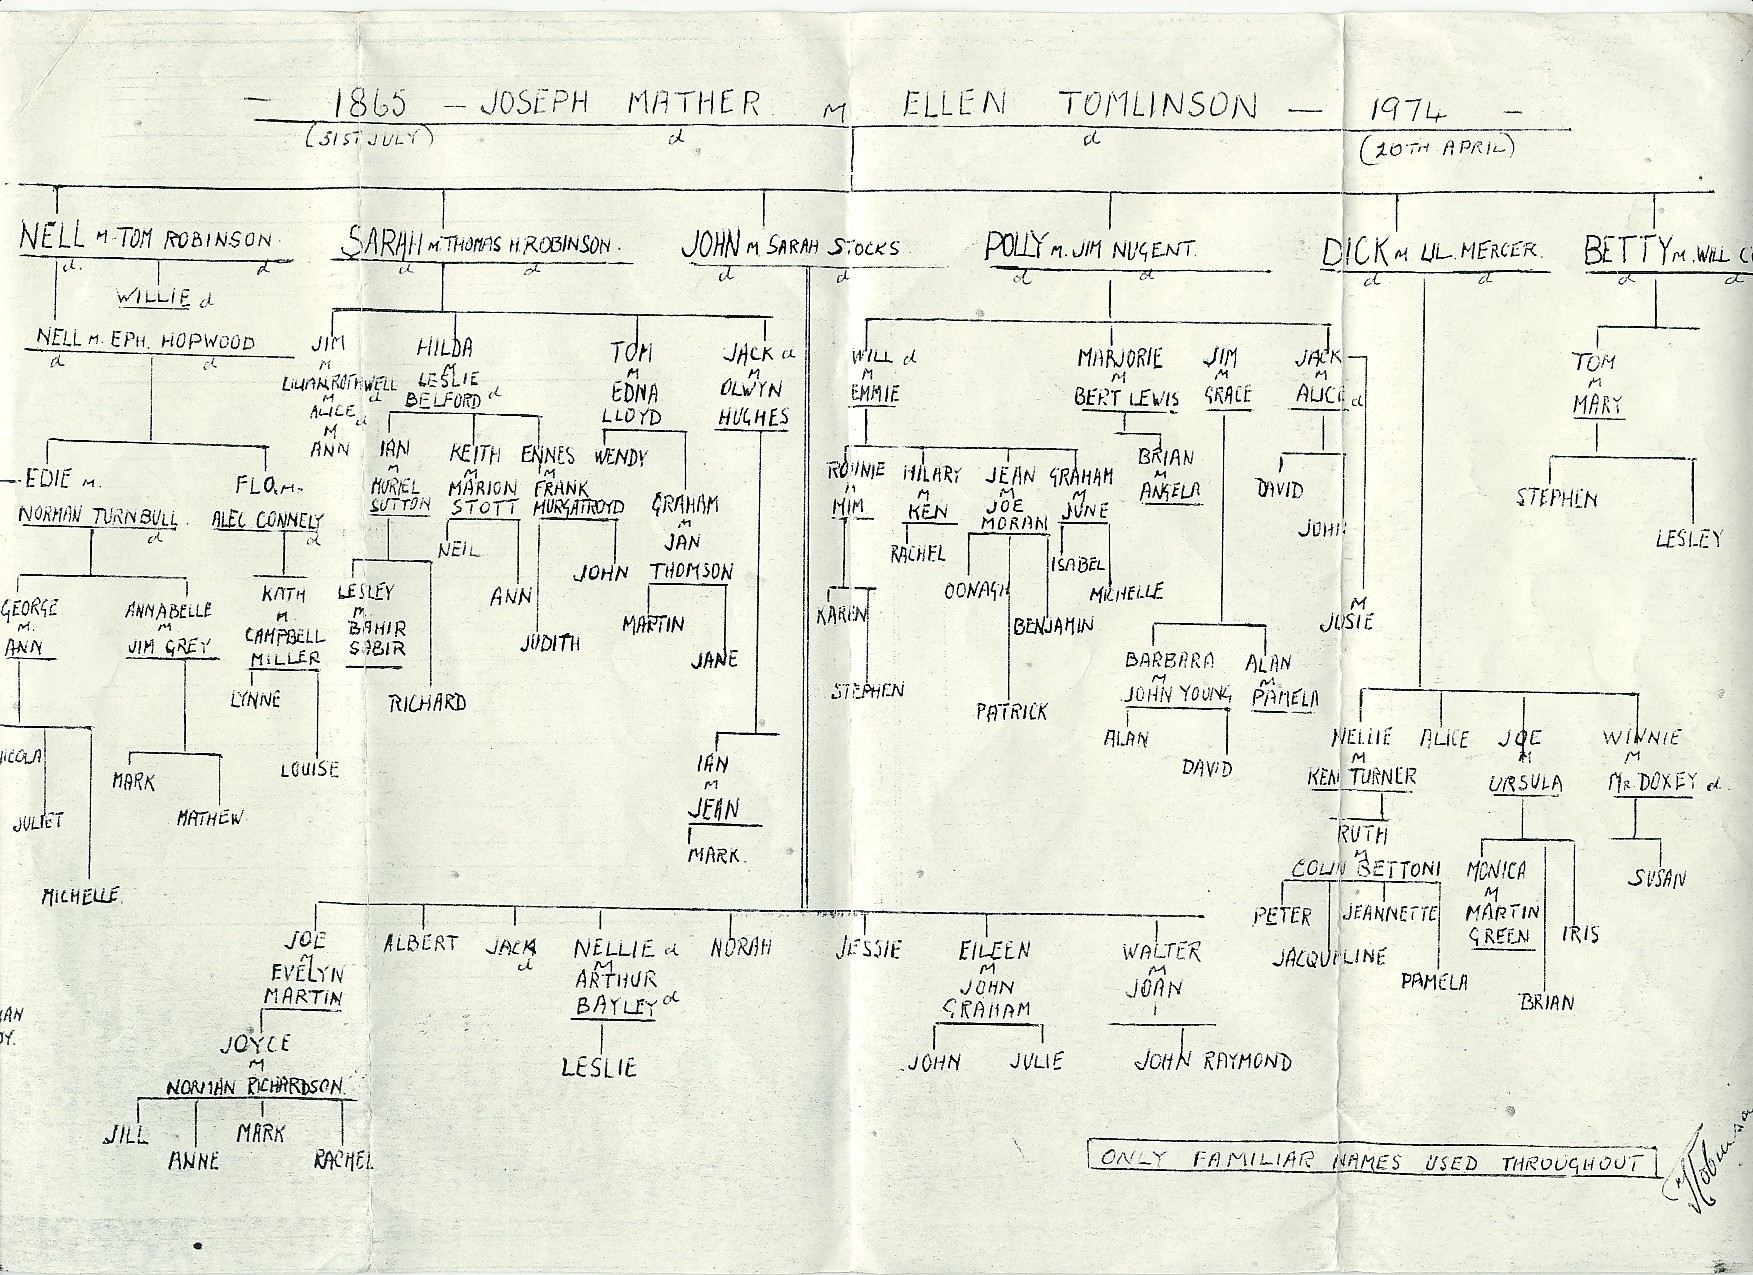 — 1865 — JOSEPH MATHER M ELLEN TOMLINSON — 1974 —
(31ST JULY) d d (20TH APRIL)
NELL M. TOM ROBINSON. SARAH M. THOMAS H. ROBINSON. JOHN M SARAH STOCKS POLLY M. JIM NUGENT. DICK M LIL. MERCER. BETTY M. WILL
d. d d d d d d d d d d d
WILLIE d
NELL M. EPH. HOPWOOD
d d
JIM HILDA TOM JACK d WILL d MARJORIE JIM JACK TOM
M M M M M M M M M
LILIAN ROTHWELL d LESLIE EDNA OLWYN EMMIE BERT LEWIS GRACE ALICE d MARY
M BELFORD d LLOYD HUGHES
ALICE d
M
ANN
EDIE M. FLO M. IAN KEITH ENNES WENDY RONNIE HILARY JEAN GRAHAM BRIAN DAVID STEPHEN
M M M M M M M M
NORMAN TURNBULL. ALEC CONNELY MURIEL MARION FRANK GRAHAM MIM KEN JOE JUNE ANGELA
d d SUTTON STOTT MURGATROYD M MORAN JOHN LESLEY
NEIL JAN RACHEL
JOHN THOMSON OONAGH ISABEL
GEORGE ANNABELLE KATH LESLEY ANN MARTIN KAREN BENJAMIN MICHELLE M
M. M M. M. JUSIE
ANN JIM GREY CAMPBELL BAHIR JUDITH JANE
MILLER SABIR BARBARA ALAN
M M
LYNNE RICHARD STEPHEN PATRICK JOHN YOUNG PAMELA
ALAN NELLIE ALICE JOE WINNIE
M M M
NICOLA MARK LOUISE IAN DAVID KEN TURNER URSULA MR. DOXEY d.
M
JULIET MATHEW JEAN RUTH
M
MARK. COLIN BETTONI MONICA SUSAN
M
MICHELLE. PETER JEANNETTE MARTIN
JACQUELINE GREEN IRIS
PAMELA BRIAN
JOE ALBERT JACK NELLIE d NORAH JESSIE EILEEN WALTER
M d M M M
EVELYN ARTHUR JOHN JOAN
MARTIN BAYLEY d GRAHAM
JOYCE LESLIE JOHN JULIE JOHN RAYMOND
M
NORMAN RICHARDSON.
JILL MARK
ANNE RACHEL
ONLY FAMILIAR NAMES USED THROUGHOUT